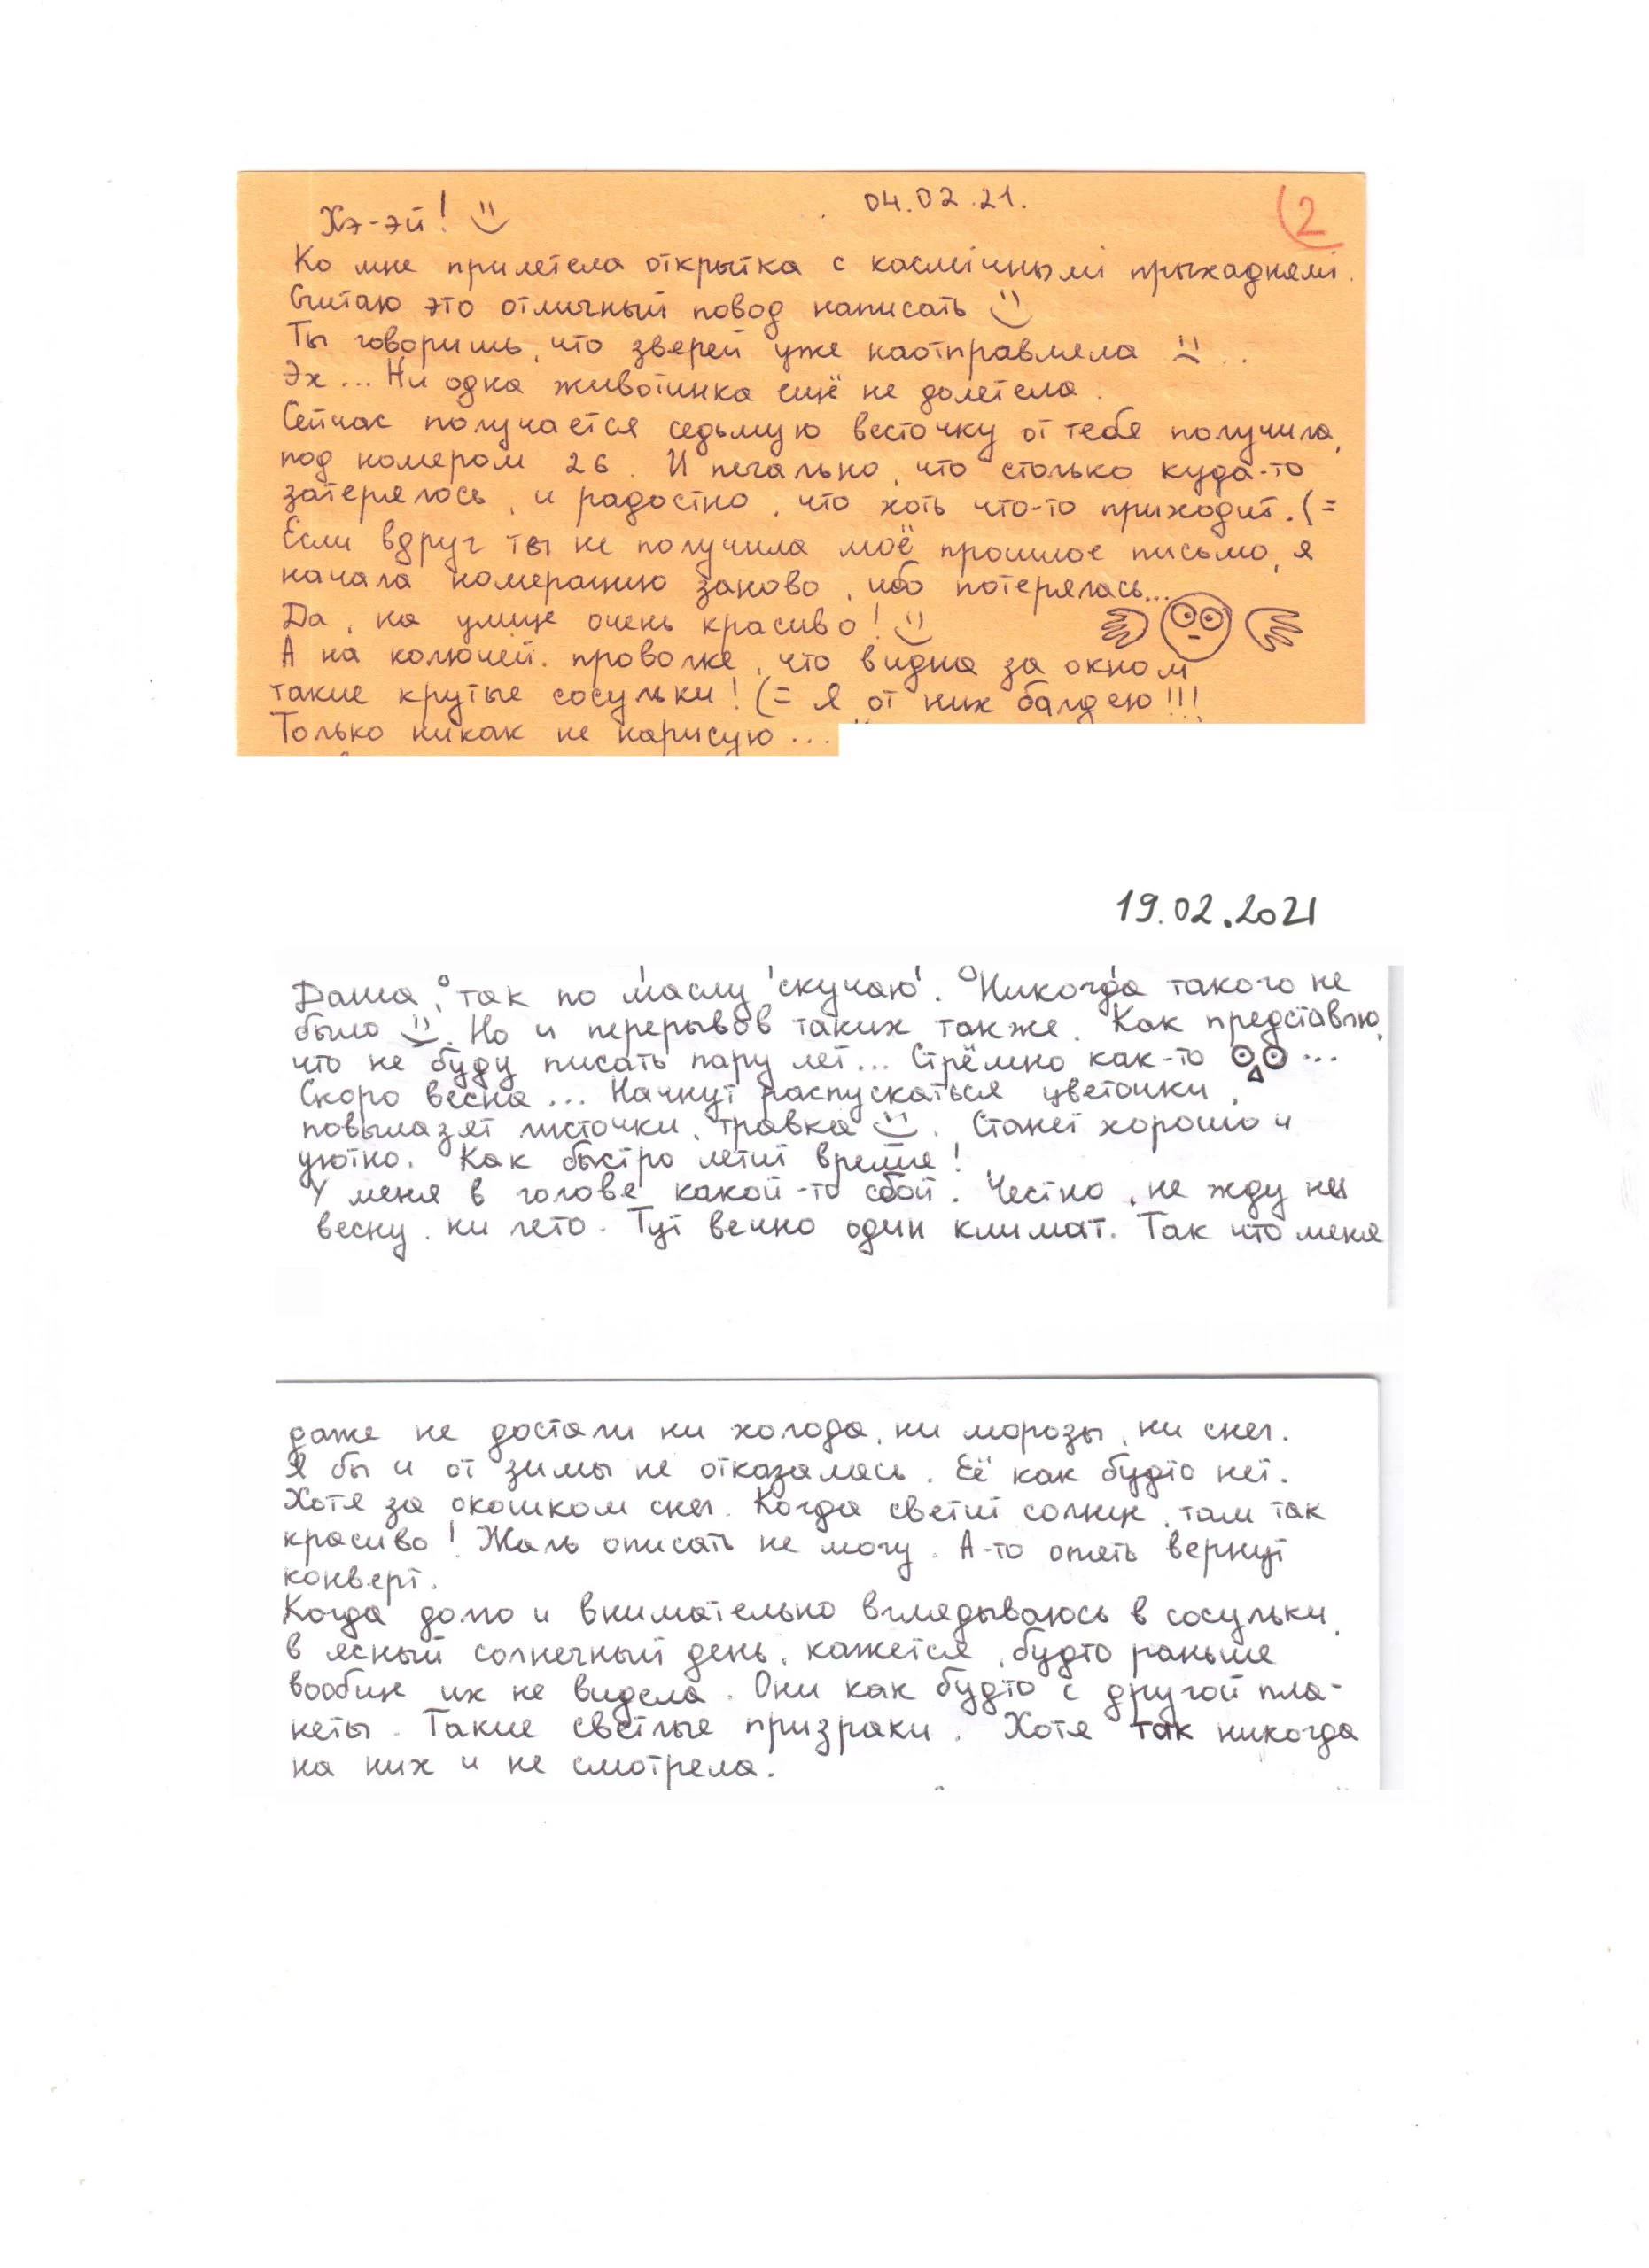 04.02.21.
2
Хэ-эй!
Ко мне прилетела открытка с касмічнымі прыхаднямі.
Считаю это отличный повод написать
Ты говоришь, что зверей уже наотправляла ..
Эх... Ни одна животинка ещё не долетела.
Сейчас получается седьмую весточку от тебя получила,
под номером 26. И печально, что столько куда-то
затерялось, и радостно, что хоть что-то приходит. (=
Если вдруг ты не получила моё прошлое письмо, я
начала номерацию заново, ибо потерялась...
Да, на улице очень красиво!
А на колючей проволке, что видна за окном
такие крутые сосульки! (= Я от них балдею!!!
Только никак не нарисую...
19.02.2021
Даша, так по маслу скучаю. Никогда такого не
было. Но и перерывов таких также. Как представлю,
что не буду писать пару лет... Стрёмно как-то ...
Скоро весна... Начнут распускаться цветочки,
повылазят листочки, травка. Станет хорошо и
уютно. Как быстро летит время!
У меня в голове какой-то сбой. Честно, не жду ни
весну, ни лето. Тут вечно один климат. Так что меня
даже не достали ни холода, ни морозы, ни снег.
Я бы и от зимы не отказалась. Её как будто нет.
Хотя за окошком снег. Когда светит солнце, там так
красиво! Жаль описать не могу. А-то опять вернут
конверт.
Когда долго и внимательно вглядываюсь в сосульки,
в ясный солнечный день, кажется, будто раньше
вообще их не видела. Они как будто с другой пла-
неты. Такие светлые призраки. Хотя так никогда
на них и не смотрела.